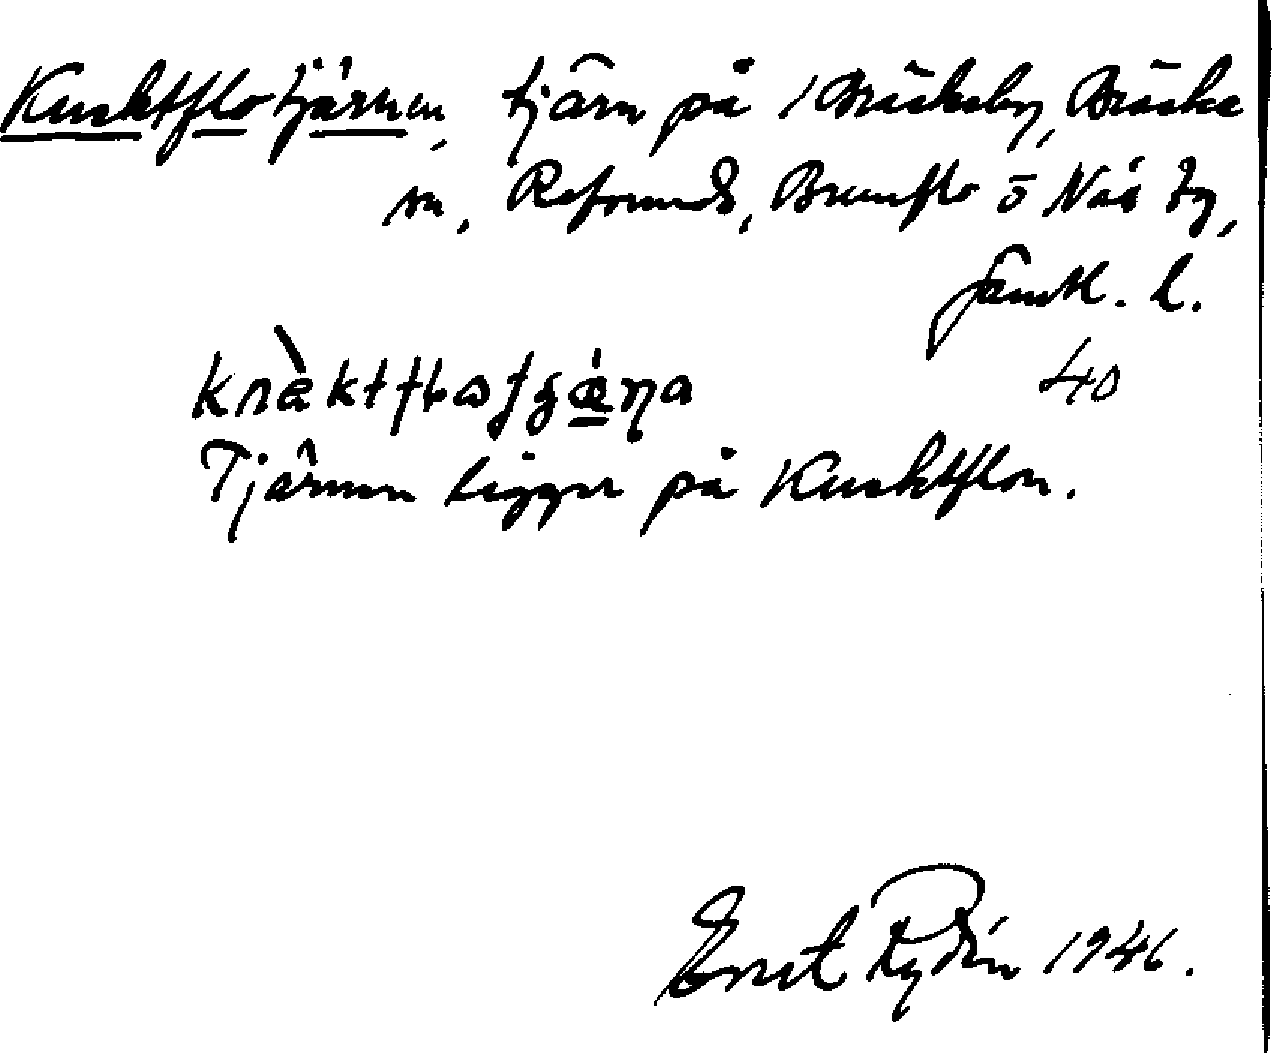 Knektflotjärnen, tjärn på 1 Bräckeby, Bräcke
sn, Refsunds, Brunflo o Näs tg,
Jämtl. l.
40
Tjärnen ligger på Knektflon.
Ernst Rydén 1946.